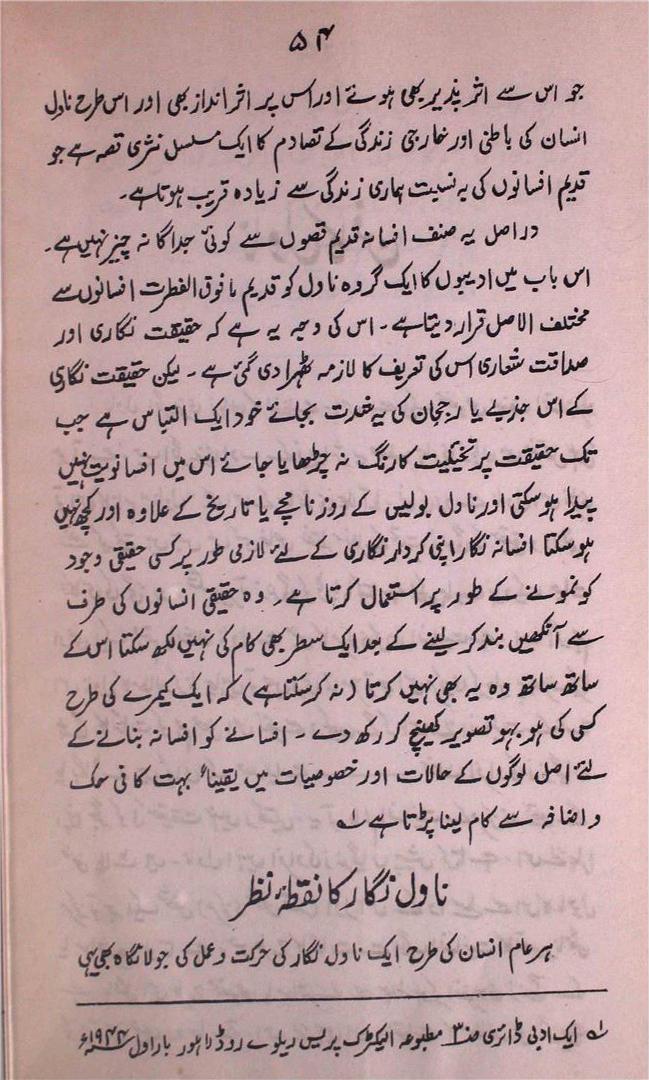 ۵۴
جو اس سے اثر پذیر بھی ہوتے اور اس پر اثر انداز بھی اور اس طرح ناول
انسان کی باطنی اور خارجی زندگی کے تصادم کا ایک مسلسل نثری قصہ ہے جو
قدیم افسانوں کی بہ نسبت ہماری زندگی سے زیادہ قریب ہوتا ہے۔
دراصل یہ صنف افسانہ قدیم قصوں سے کوئی جداگانہ چیز نہیں ہے۔
اس باب میں ادیبوں کا ایک گروہ ناول کو قدیم مافوق الفطرت افسانوں سے
مختلف الاصل قرار دیتا ہے۔ اس کی وجہ یہ ہے کہ حقیقت نگاری اور
صداقت شعاری اس کی تعریف کا لازمہ ٹھہرا دی گئی ہے۔ لیکن حقیقت نگاری
کے اس جذبے یا رجحان کی یہ شدت بجائے خود ایک التباس ہے جب
تک حقیقت پر تخیلیت کا رنگ نہ چڑھایا جائے اس میں افسانویت نہیں
پیدا ہو سکتی اور ناول پولیس کے روزنامچے یا تاریخ کے علاوہ اور کچھ نہیں
ہو سکتا افسانہ نگار اپنی کردار نگاری کے لئے لازمی طور پر کسی حقیقی وجود
کو نمونے کے طور پر استعمال کرتا ہے۔ وہ حقیقی انسانوں کی طرف
سے آنکھیں بند کر لینے کے بعد ایک سطر بھی کام کی نہیں لکھ سکتا اس کے
ساتھ ساتھ وہ یہ بھی نہیں کرتا (نہ کر سکتا ہے) کہ ایک کیمرے کی طرح
کسی کی ہو بہو تصویر کھینچ کر رکھ دے۔ افسانے کو افسانہ بنانے کے
لئے اصل لوگوں کے حالات اور خصوصیات میں یقیناً بہت کافی حک
و اضافہ سے کام لینا پڑتا ہے ۱؎
ناول نگار کا نقطۂ نظر
ہر عام انسان کی طرح ایک ناول نگار کی حرکت و عمل کی جولانگاہ بھی یہی
۱؎ ایک ادبی ڈائری صـ۳ مطبوعہ الیکٹرک پریس ریلوے روڈ لاہور بار اول ۱۹۴۴ء